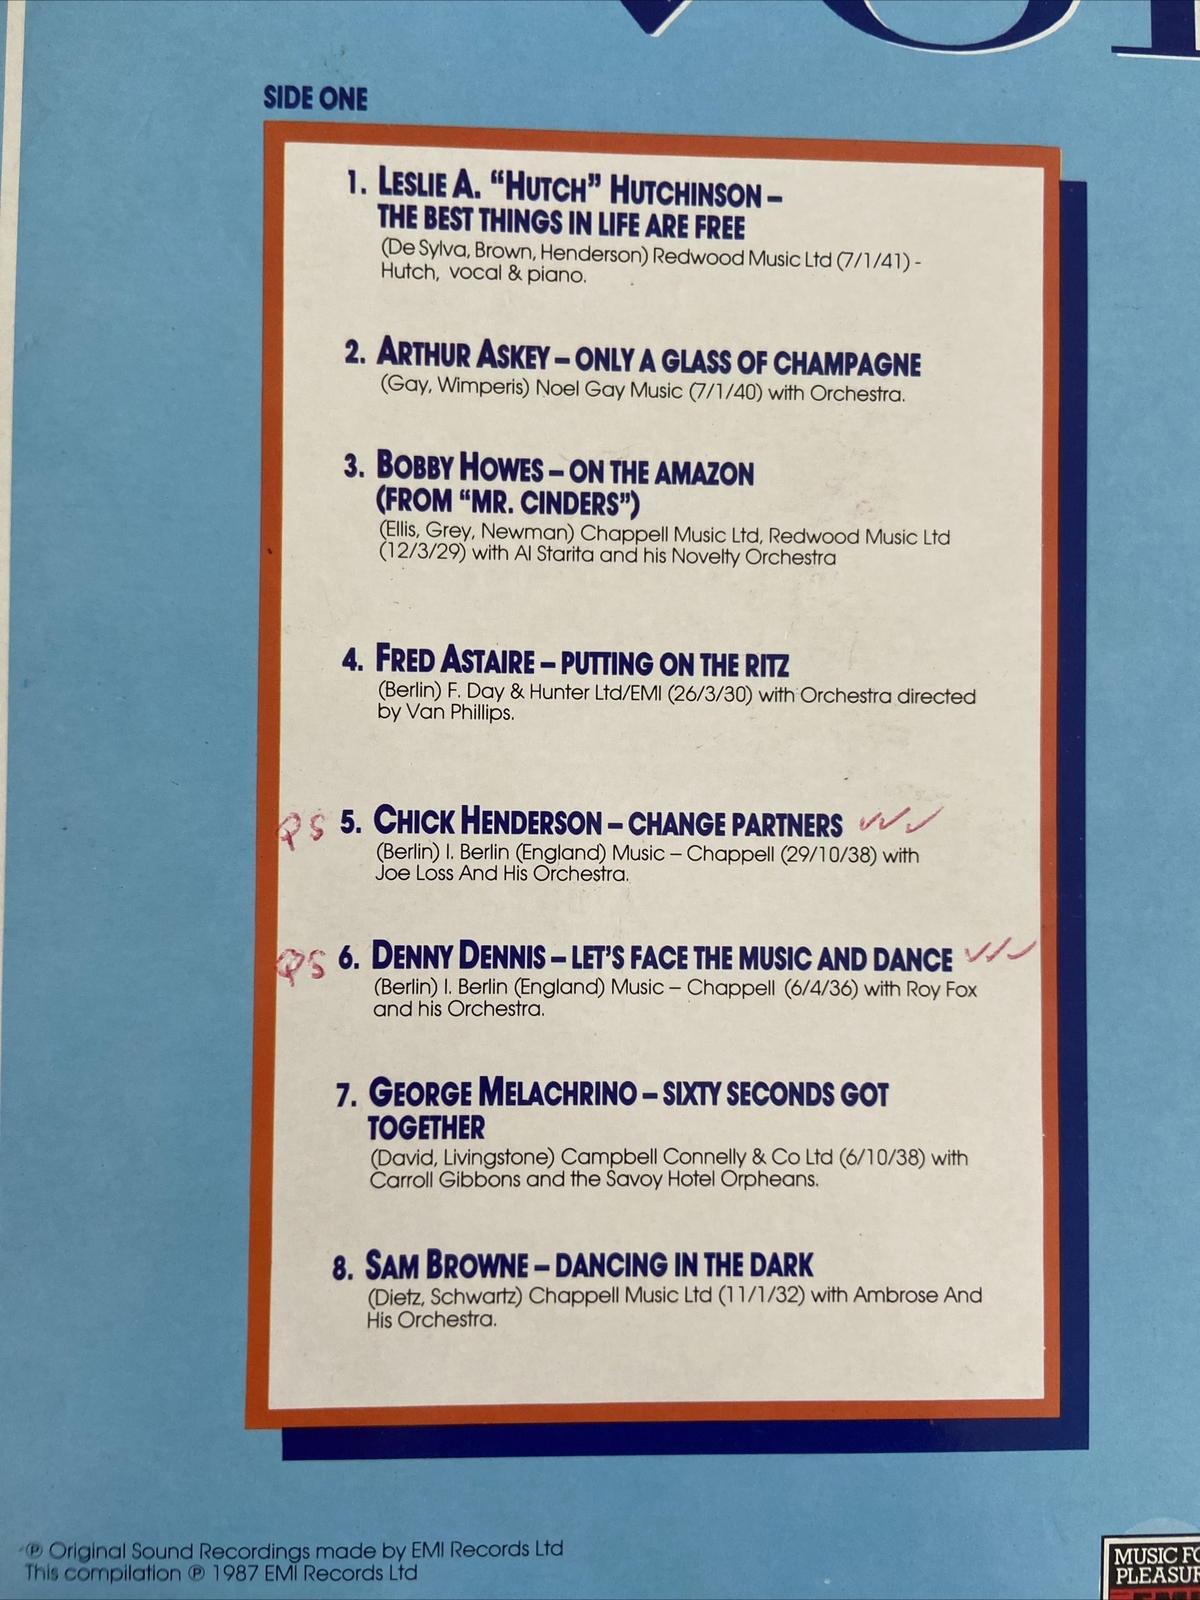 SIDE ONE
1. LESLIE A. “HUTCH” HUTCHINSON –
THE BEST THINGS IN LIFE ARE FREE
(De Sylva, Brown, Henderson) Redwood Music Ltd (7/1/41) -
Hutch, vocal & piano.
2. ARTHUR ASKEY – ONLY A GLASS OF CHAMPAGNE
(Gay, Wimperis) Noel Gay Music (7/1/40) with Orchestra.
3. BOBBY HOWES – ON THE AMAZON
(FROM “MR. CINDERS”)
(Ellis, Grey, Newman) Chappell Music Ltd, Redwood Music Ltd
(12/3/29) with Al Starita and his Novelty Orchestra
4. FRED ASTAIRE – PUTTING ON THE RITZ
(Berlin) F. Day & Hunter Ltd/EMI (26/3/30) with Orchestra directed
by Van Phillips.
QS 5. CHICK HENDERSON – CHANGE PARTNERS ✓✓✓
(Berlin) I. Berlin (England) Music – Chappell (29/10/38) with
Joe Loss And His Orchestra.
QS 6. DENNY DENNIS – LET'S FACE THE MUSIC AND DANCE ✓✓✓
(Berlin) I. Berlin (England) Music – Chappell (6/4/36) with Roy Fox
and his Orchestra.
7. GEORGE MELACHRINO – SIXTY SECONDS GOT
TOGETHER
(David, Livingstone) Campbell Connelly & Co Ltd (6/10/38) with
Carroll Gibbons and the Savoy Hotel Orpheans.
8. SAM BROWNE – DANCING IN THE DARK
(Dietz, Schwartz) Chappell Music Ltd (11/1/32) with Ambrose And
His Orchestra.
℗ Original Sound Recordings made by EMI Records Ltd
This compilation ℗ 1987 EMI Records Ltd
MUSIC FO
PLEASUR